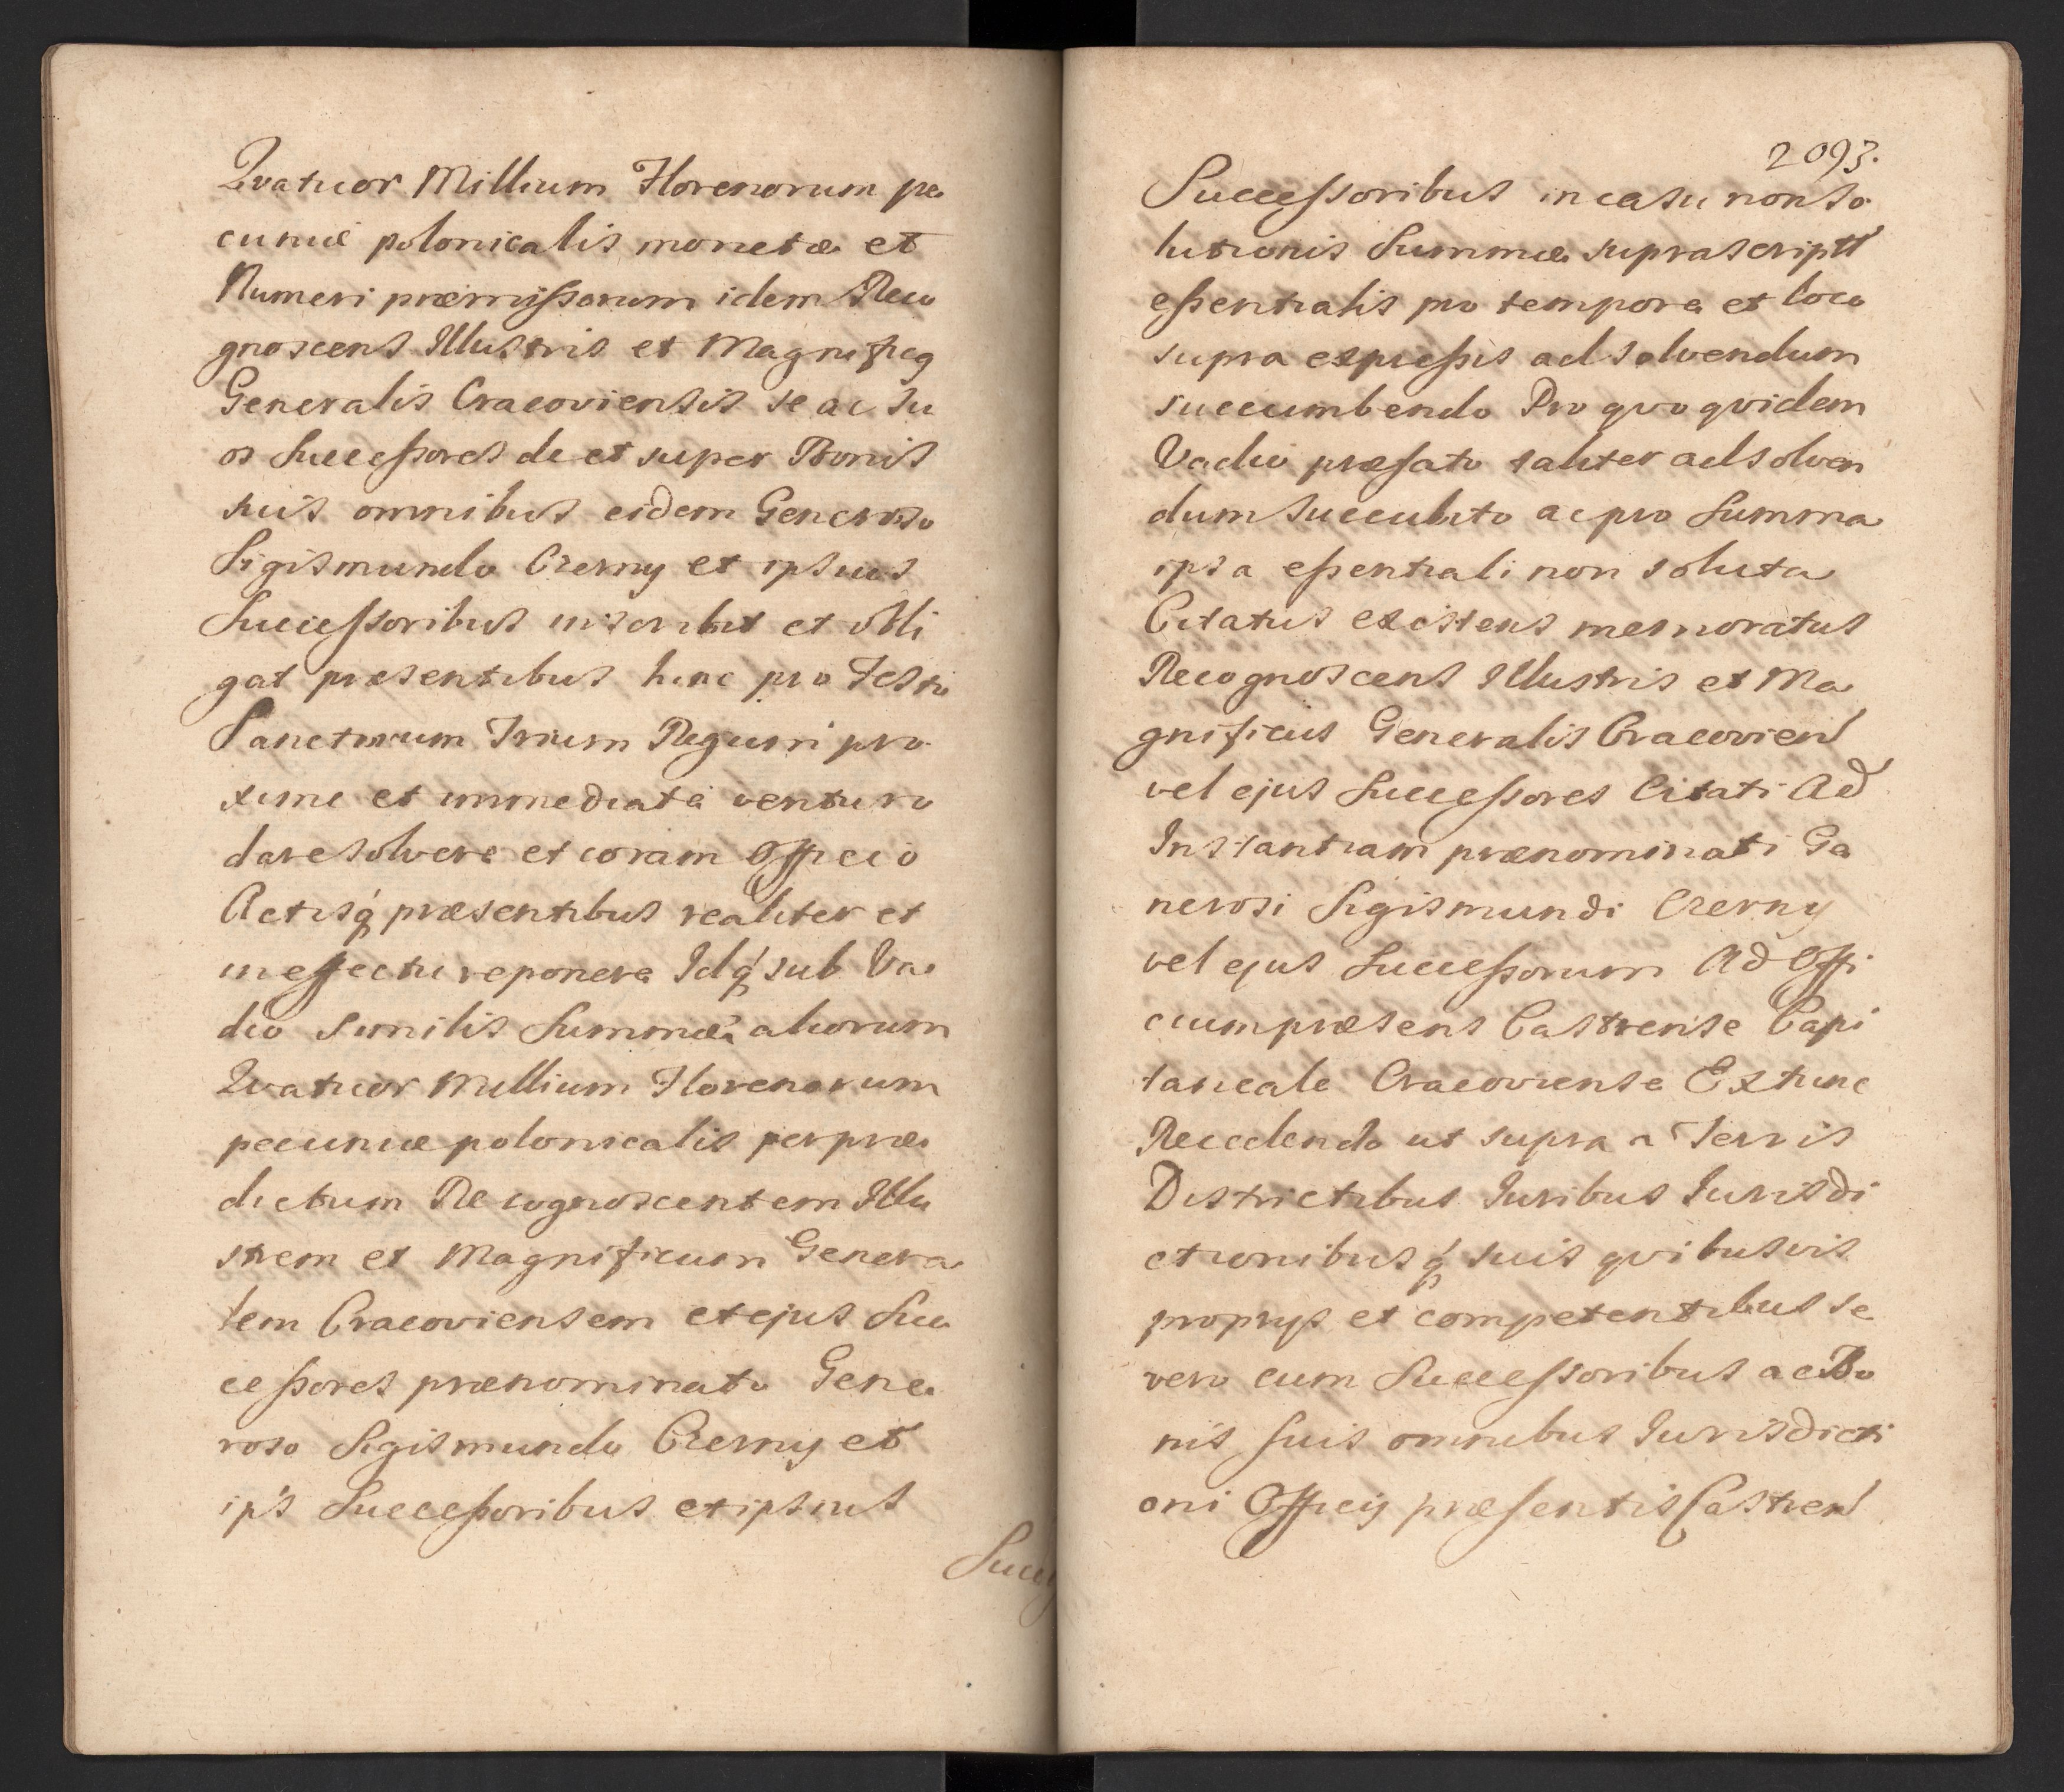 Qvatuor Millium Florenorum pe
cuniæ polonicalis monetæ et
Numeri præmissorum idem Reco
gnoscens Illustris et Magnificq
Generalis Cracoviensis se ac su
os Successores de et super Bonis
suis omnibus eidem Generoso
Sigismundo Czerny et ipsius
Successoribus inscribit et obli
gat præsentibus hinc pro Festo
Sanctorum Trium Regum pro
xime et immediate venturo
dare solvere et coram Officio
Actisq́ præsentibus realiter et
in effectu reponere Idq́ sub Va
dio similis Summæ aliorum
Qvatuor Millium Florenorum
pecuniæ polonicalis per præ
dictum Recognoscentem Illu
strem et Magnificum Genera
lem Cracoviensem et ejus Suc
cessores prænominato Gene
roso Sigismundo Czerny et
ip's Successoribus et ipsius
Succ
2093.
Successoribus in casu non so
lutionis Summæ suprascriptt
essentialis pro tempore et loco
supra expressis ad solvendum
succumbendo Pro qvo qvidem
Vadio præfato taliter ad solven
dum succubito ac pro Summa
ipsa essentiali non soluta
Citatus existens memoratus
Recognoscens Illustris et Ma
gnificus Generalis Cracovien
vel ejus Successores Citati Ad
Instantiam prænominati Ge
nerosi Sigismundi Czerny
vel ejus Successorum Ad Offi
cium præsens Castrense Capi
taneale Cracoviense Extunc
Recedendo ut supra a Terris
Districtibus Juribus Jurisdi
ctionibusq́ suis qvibusvis
proprys et competentibus se
vero cum Successoribus ac Bo
nis suis omnibus Jurisdicti
oni Officy præsentis Castren